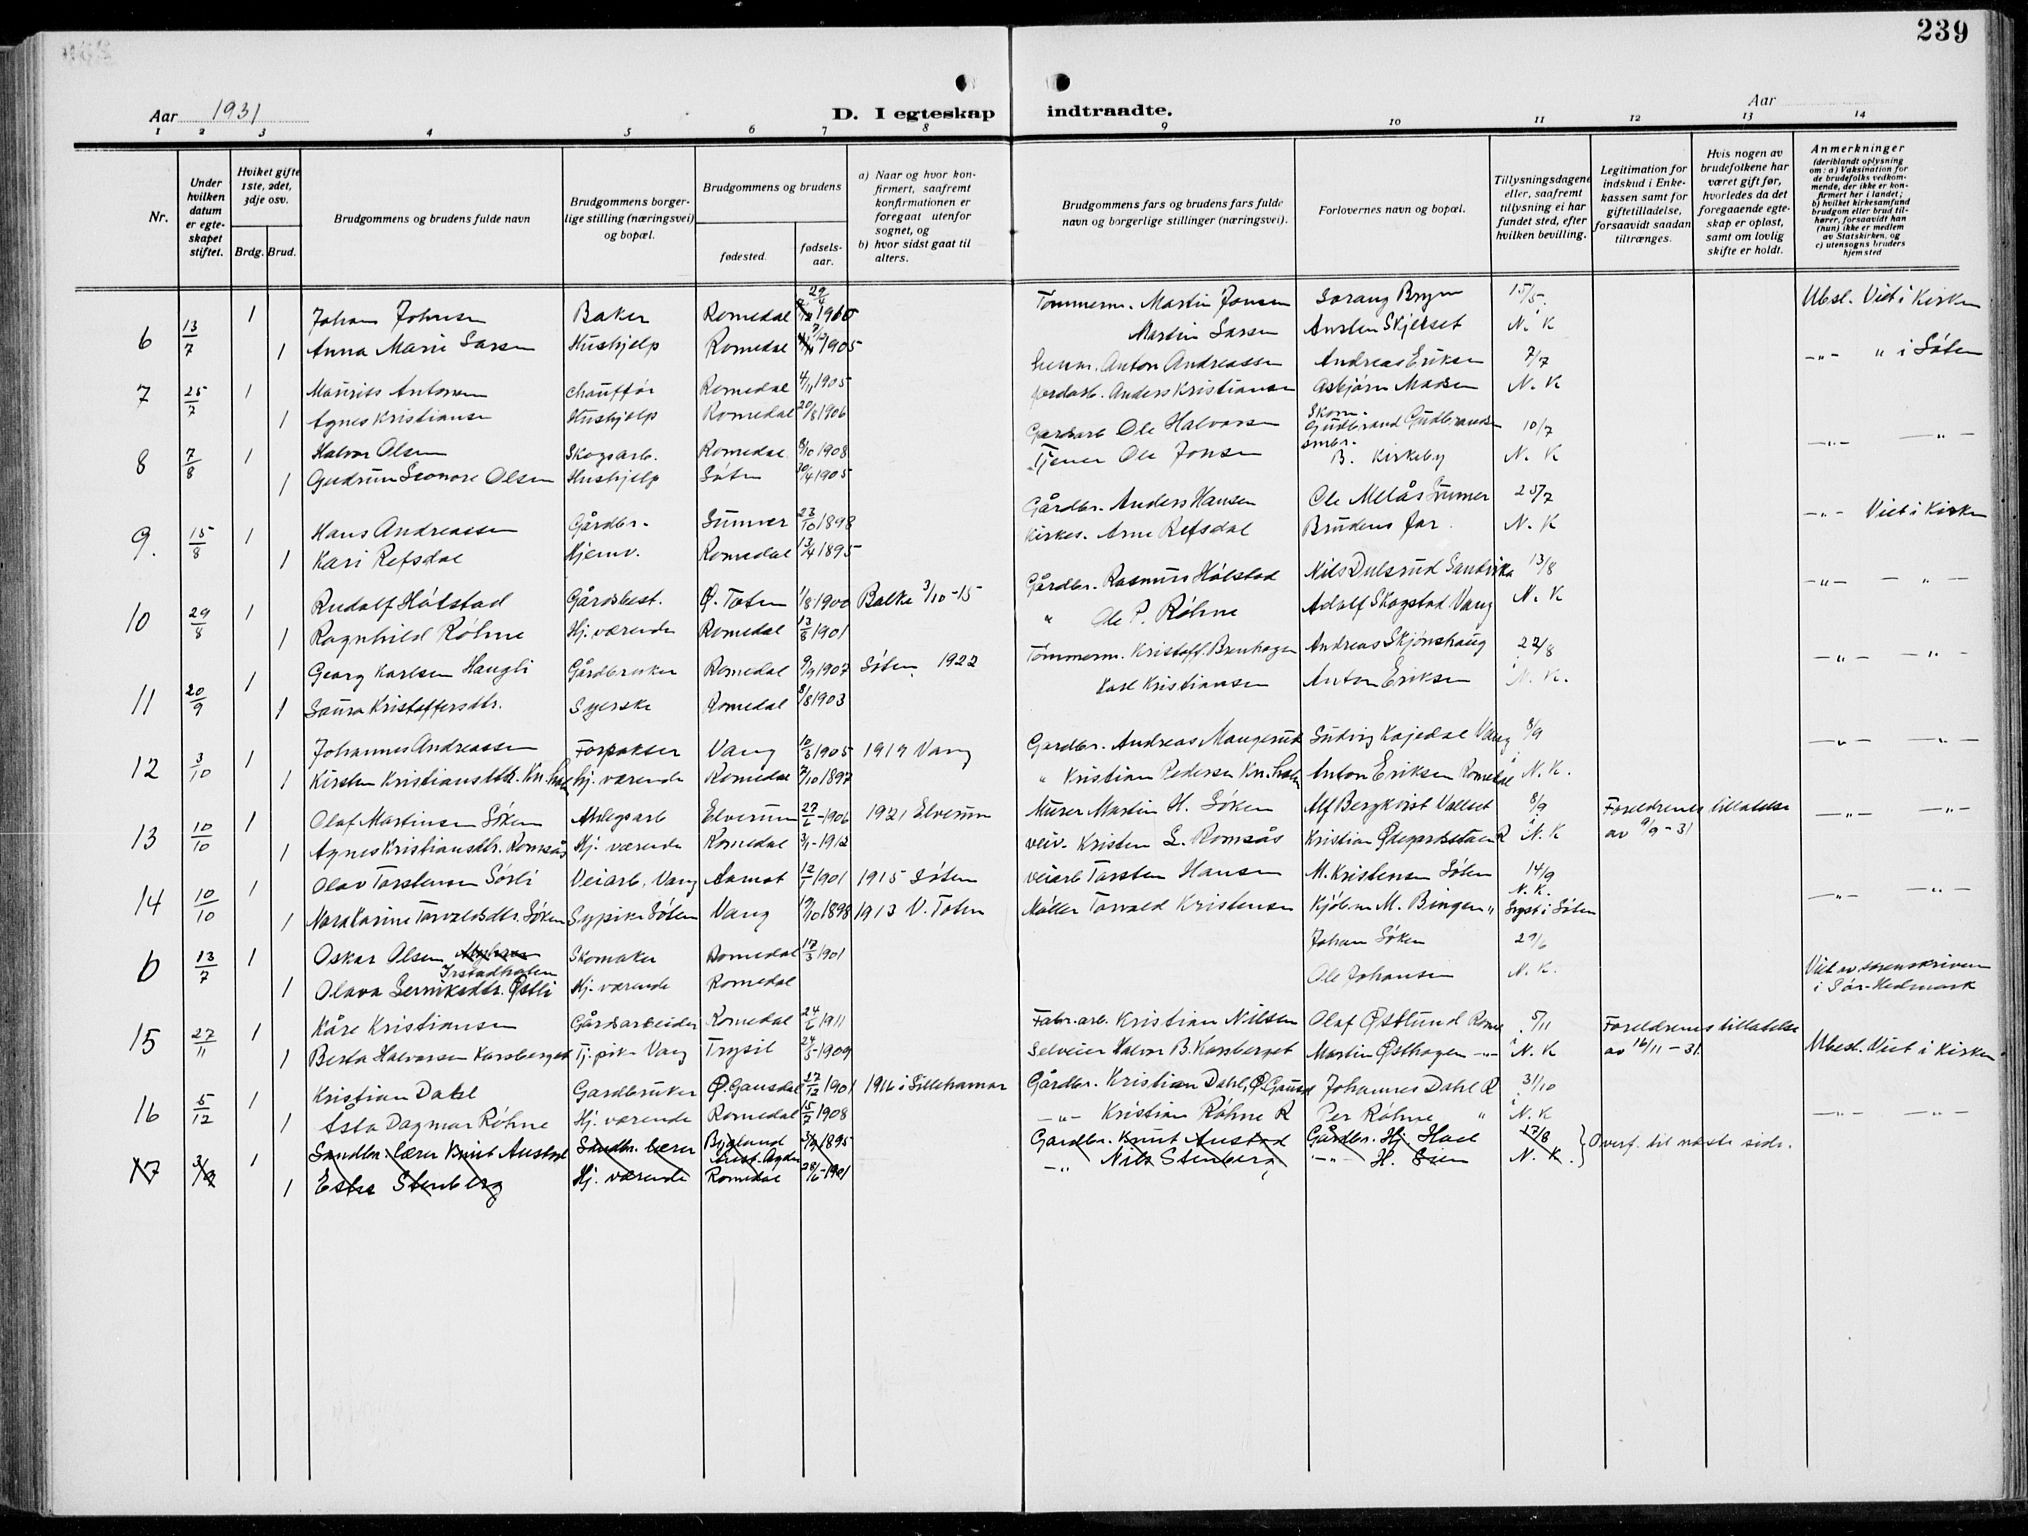 239
Aar 1931
D. I egteskap indtraadte.
Aar
1 2 3 4 5 6 7 8 9 10 11 12 13 14
Nr.
Under hvilken datum er egteskapet stiftet.
Hviket gifte 1ste, 2det, 3dje osv.
Brdg. Brud.
Brudgommens og brudens fulde navn
Brudgommens borgerlige stilling (næringsvei) og bopæl.
Brudgommens og brudens
fødested.
fødselsaar.
a) Naar og hvor konfirmert, saafremt konfirmationen er foregaat utenfor sognet, og
b) hvor sidst gaat til alters.
Brudgommens fars og brudens fars fulde navn og borgerlige stillinger (næringsvei).
Forlovernes navn og bopæl.
Tillysningsdagene eller, saafremt tillysning ei har fundet sted, efter hvilken bevilling.
Legitimation for indskud i Enkekassen samt for giftetilladelse, forsaavidt saadan tiltrænges.
Hvis nogen av brudefolkene har været gift før, hvorledes da det foregaaende egteskap er opløst, samt om lovlig skifte er holdt.
Anmerkninger (deriblandt oplysning om: a) Vaksination for de brudefolks vedkommende, der ikke er konfirmert her i landet; b) hvilket kirkesamfund brudgom eller brud tilhører, forsaavidt han (hun) ikke er medlem av Statskirken, og c) utensogns bruders hjemsted
6 13/7 1 Johan Johnsen Baker Romedal 29/4 1905 Tømmerm. Martin Jonsen Bryn 15/5. Ubesl. Viet i Kirken
1 Anna Marie Larsen Hushjelp Romedal 1905 Martin Larsen Austen Skjelset N. K
7 25/7 1 Maurits Antonsen Chauffør Romedal 4/11 1905 Anton Andreassen Andreas Eriksen 7/7 -"- " i Løten
1 Agnes Kristiansen Hushjelp Romedal 20/8 1906 Jordarb. Anders Kristiansen Asbjørn Madsen N. K
8 7/8 1 Halvor Olsen Skogsarb. Romedal 8/10 1908 Gårdsarb Ole Halvorsen Skom. Gudbrand Gudbrands 10/7 -"- -"-
1 Gudrun Leonore Olsen Hushjelp Løten 30/4 1905 Tjener Ole Jonsen B. Kirkeby N. K
9. 15/8 1 Hans Andreassen Gårdbr. 23/10 1898 Gårdbr. Anders Hansen Ole Melås 25/7 -"- Viet i Kirken
1 Kari Refsdal Hjemv. Romedal 13/4 1895 Kirkes. Arne Refsdal Brudens far. N. K
10 29/8 1 Rudolf Hólstad Gårdsbest. Ø. Toten 1/8 1900 Balke 3/10-15 Gårdbr. Rasmus Hólstad Nils Dulsrud Sandvika 13/8 -"- -"-
1 Ragnhild Røhne Hj. værende Romedal 13/8 1901 " Ole P. Røhne Adolf Skogstad Vang N. K
11 20/9 1 Georg Karlsen Haugli Gårdbruker Romedal 9/9 1907 Løten 1922 Tømmerm. Kristoff. Brenhagen Andreas Skjønshaug 22/8 -"- -"-
1 Laura Kristoffersdtr. Syerske Romedal 8/8 1903 Karl Kristiansen Anton Eriksen N. K.
12 3/10 1 Johannes Andreassen Forpakter Vang 10/3 1905 1919 Vang Gardbr. Andreas Maugerud Ludvig Kajedal Vang 8/9 -"- -"-
1 Kirsten Kristiansdtr. Kn. holen Hj. værende Romedal 7/10 1897 " Kristian Pedersen Kn. holen Anton Eriksen Romedal N. K.
13 10/10 1 Olaf Martinsen Løken Anlegsarb Elverum 27/6-1906 1921 Elverum Murer Martin H. Løken Alf Bergkvist Vallset 8/9 Foreldrenes tillatelse av 9/9-31 -"- -"-
1 Agnes Kristiansdtr. Romsås Hj. værende Romedal 3/1-1912 veiv. Kristen L. Romsås Kristian Ødegardsstuen R N. K
14 10/10 1 Olav Torstensen Sørli Veiarb. Vang Aamot 12/1 1901 1915 Løten Veiarb Torsten Hansen M. Kristensen Løten 14/9 N. K. -"- -"-
1 Nora Karine Torvaldsdtr. Løken Sypike Løten Vang 19/10 1898 1913 V. Toten Møller Torvald Kristensen Kjøbm M. Bingen " Lyst i Løten
b 13/7 1 Oskar Olsen Irstadholen Skomaker Romedal 17/3 1901 Johan Løken 29/6 Viet av sorenskriveren i Sør-Hedmark
1 Olava Østli Hj. værende Romedal Ole Johansen N. K.
15 27/11 1 Kåre Kristiansen Gårdsarbeider Romedal 24/6 1911 Fabr.arb. Kristian Nilsen Olaf Østlund Romed 5/11 Foreldrenes tillatelse av 16/11-31. Ubesl. Viet i Kirken
1 Berta Halvorsen Karsberget Tj. pike Vang Trysil 24/5-1909 Selveier Halvor B. Karsberget Martin Østhagen -"- N. K
16 5/12 1 Kristian Dahl Gardbruker Ø. Gausdal 17/12 1901 1916 i Lillehamar Gårdbr. Kristian Dahl, Ø. Gausd Johannes Dahl R 31/10 -"- -"-
1 Åsta Dagmar Røhne Hj. værende Romedal 15/7 1908 -"- Kristian Røhne R Per Røhne " N. K
17 3/9 1 Landbr. lærer Knut Austad Landbr. lærer Bygland Aust. Agder 3/9 1895 Gardbr. Knut Austad Gårdbr. Hj. Hoel 17/8 Overf. til næste side.
1 Ester Stenberg Hj. værende Romedal 28/6-1901 -"- Nils Stenberg -"- H. Lien N. K.